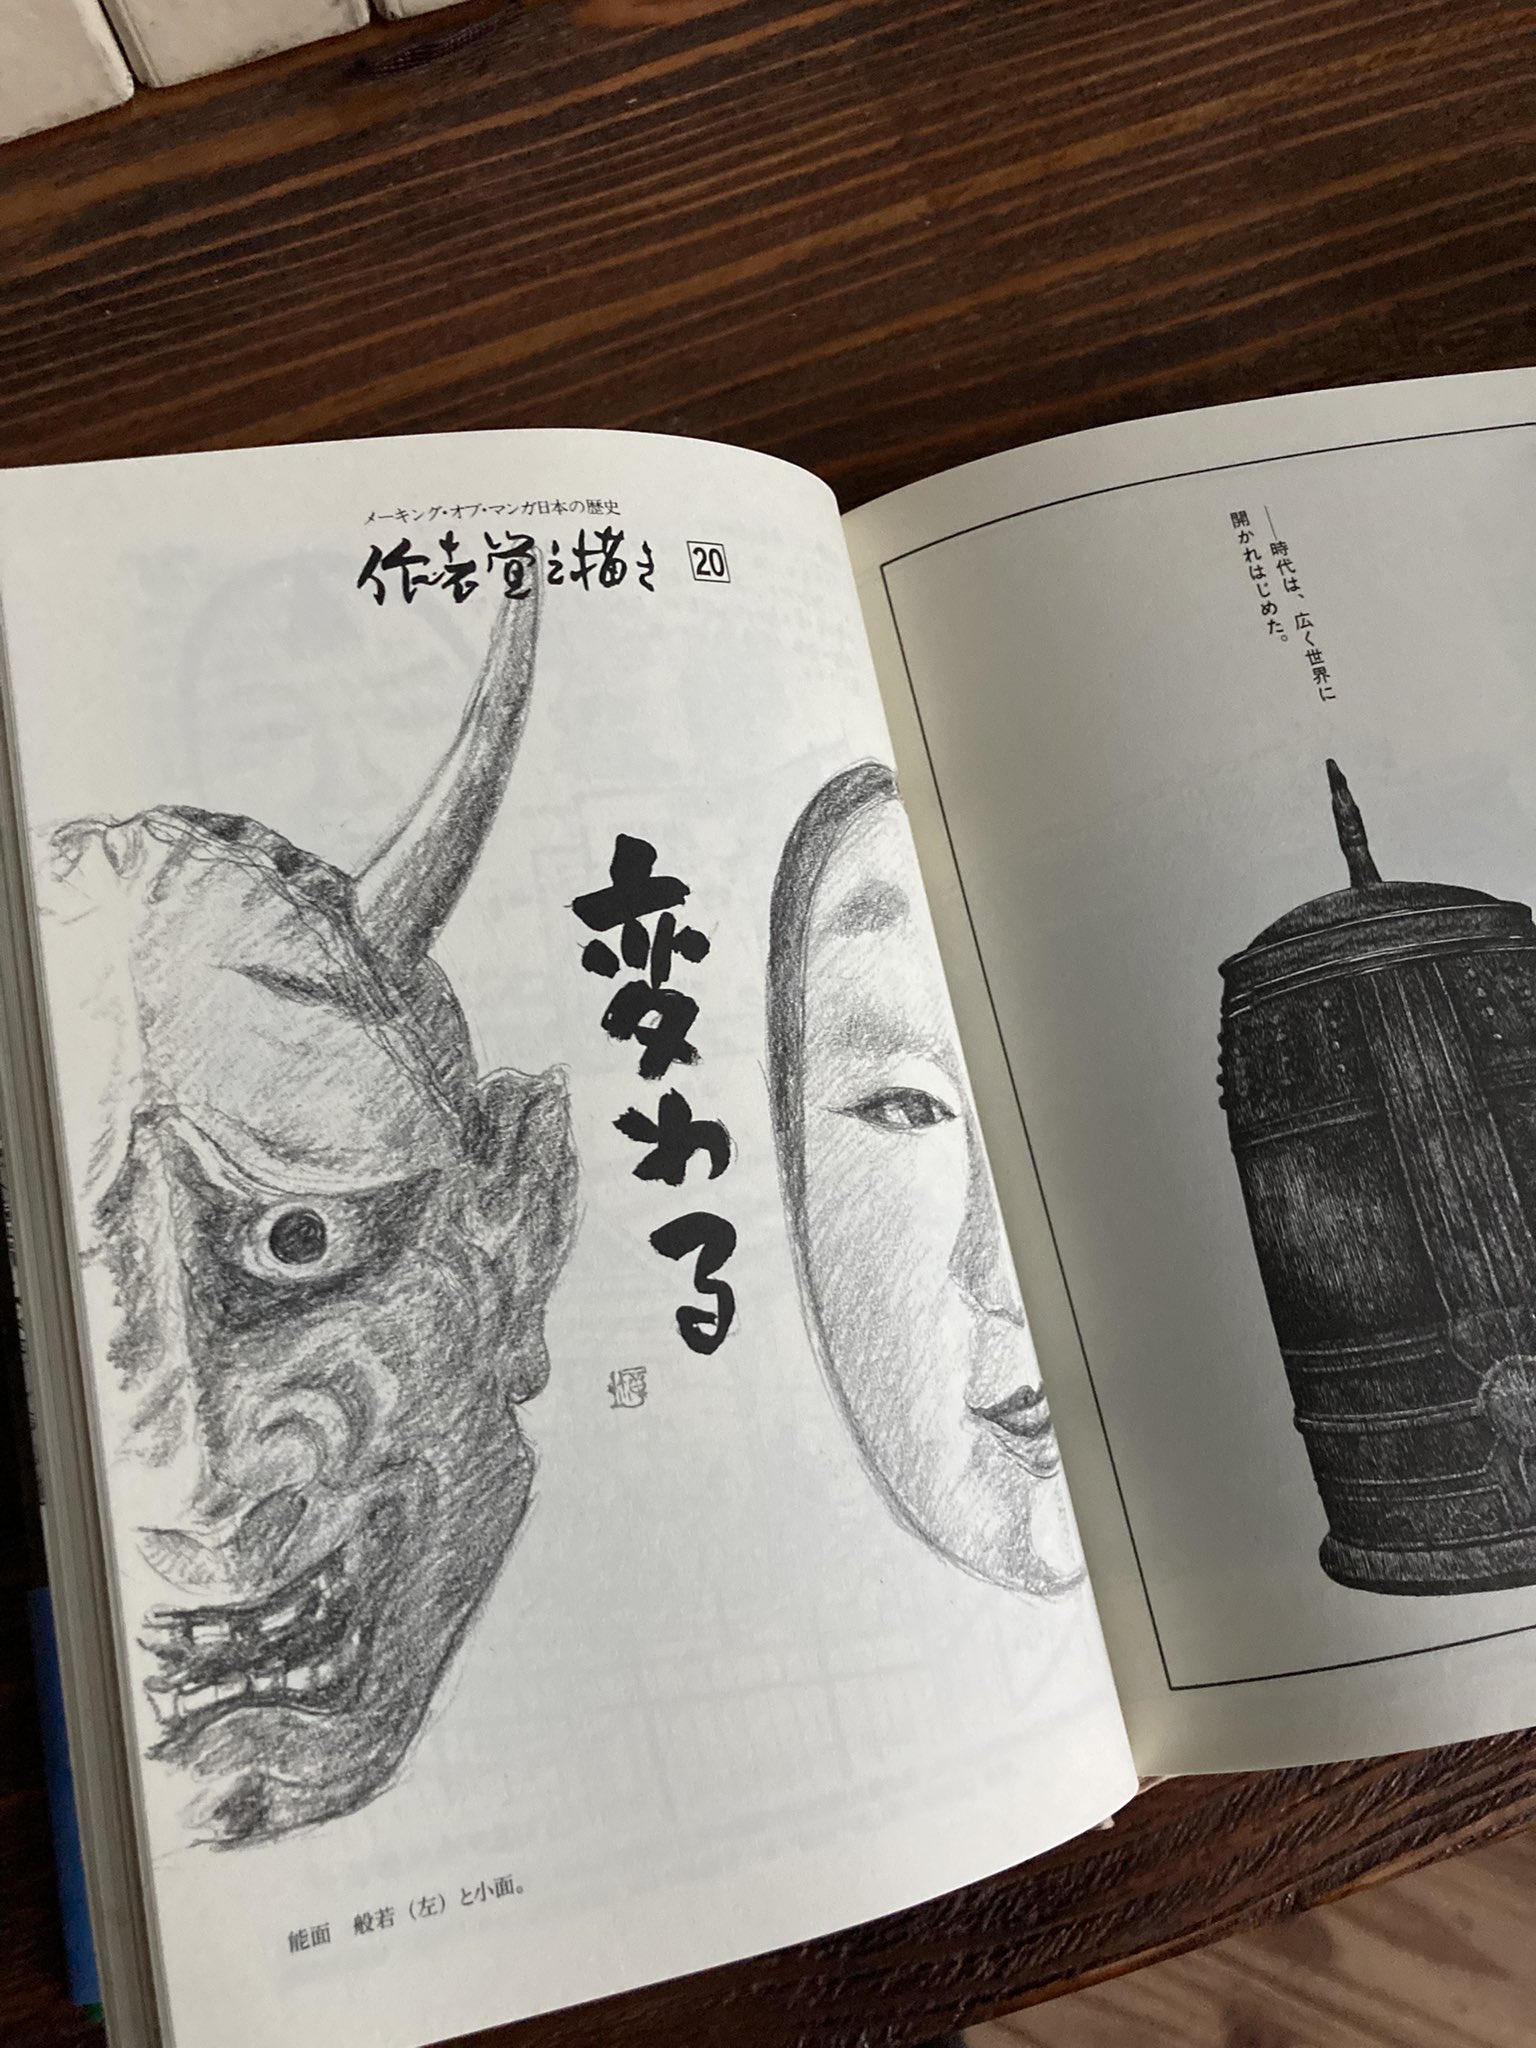 メーキング・オブ・マンガ日本の歴史
作者覚え描き 20
変わる
能面　般若（左）と小面。
――時代は、広く世界に
開かれはじめた。